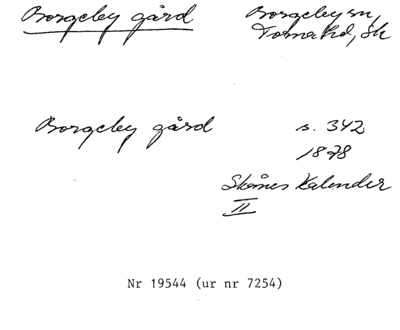 Borgeby gård
Borgeby sn,
Torna hd, Sk
Borgeby gård
s. 342
1878
Skånes Kalender
II
Nr 19544 (ur nr 7254)